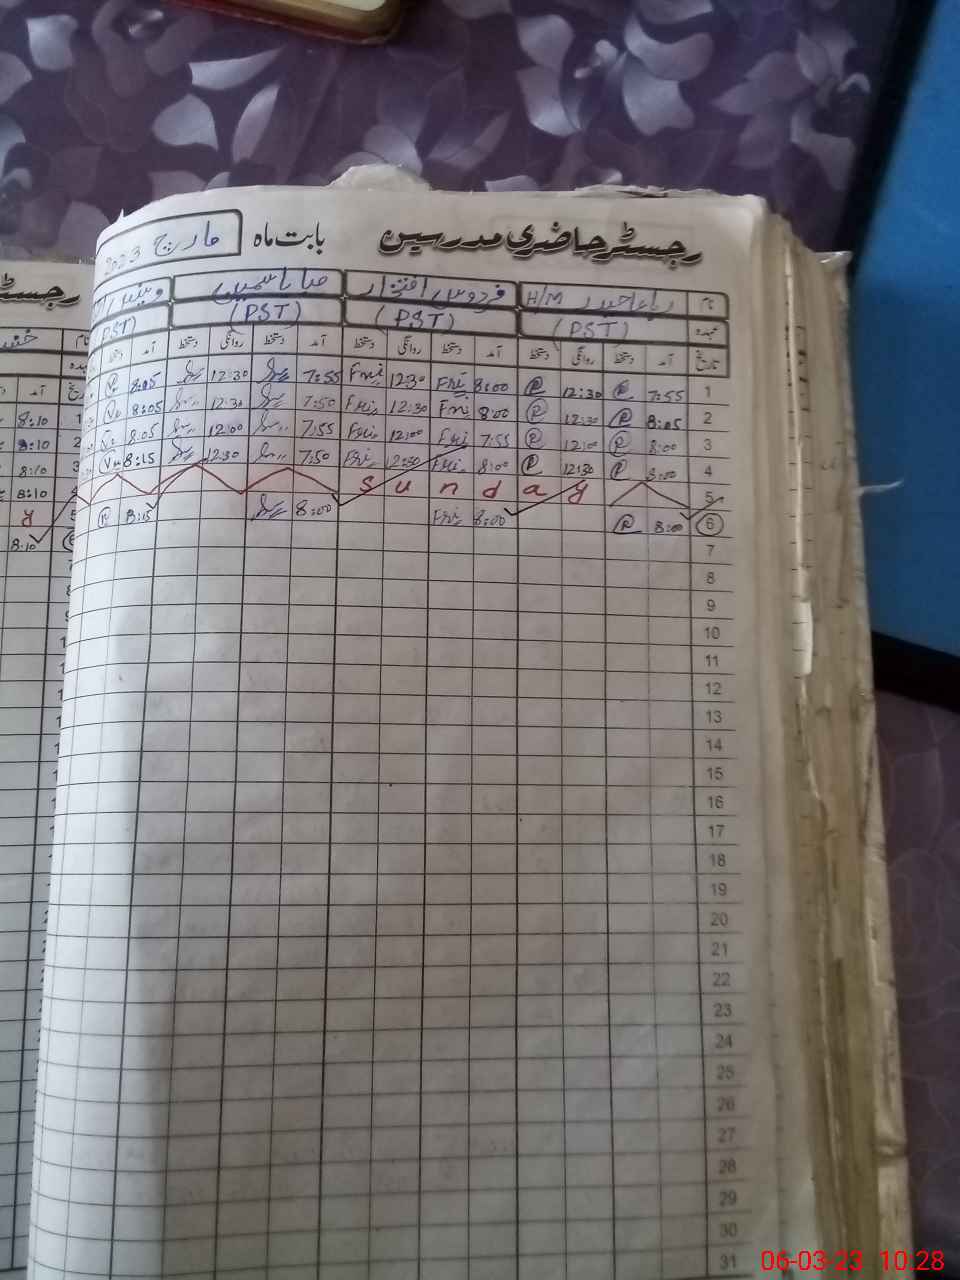 رجسٹر حاضری مدرسین بابت ماہ مارچ 2023
نام H/M فردوس افتخار صبا یاسمین
عہدہ (PST) (PST) (PST) PST)
تاریخ آمد دستخط روانگی دستخط آمد دستخط روانگی دستخط آمد دستخط روانگی دستخط آمد دستخط
1 7:55 12:30 8:00 Fri 12:30 Fri 7:55 12:30 8:05
2 8:05 12:30 8:00 Fri 12:30 Fri 7:50 12:30 8:05
3 8:00 12:00 7:55 Fri 12:00 Fri 7:55 12:00 8:05
4 8:00 12:30 8:00 Fri 12:30 Fri 7:50 12:30 8:15
5 Sunday
6 8:00 8:00 Fri 8:00 8:15
7
8
9
10
11
12
13
14
15
16
17
18
19
20
21
22
23
24
25
26
27
28
29
30
31
رجسٹ
نام
آمد
8:10
8:10
8:10
8:10
y
8:10
06-03-23 10:28